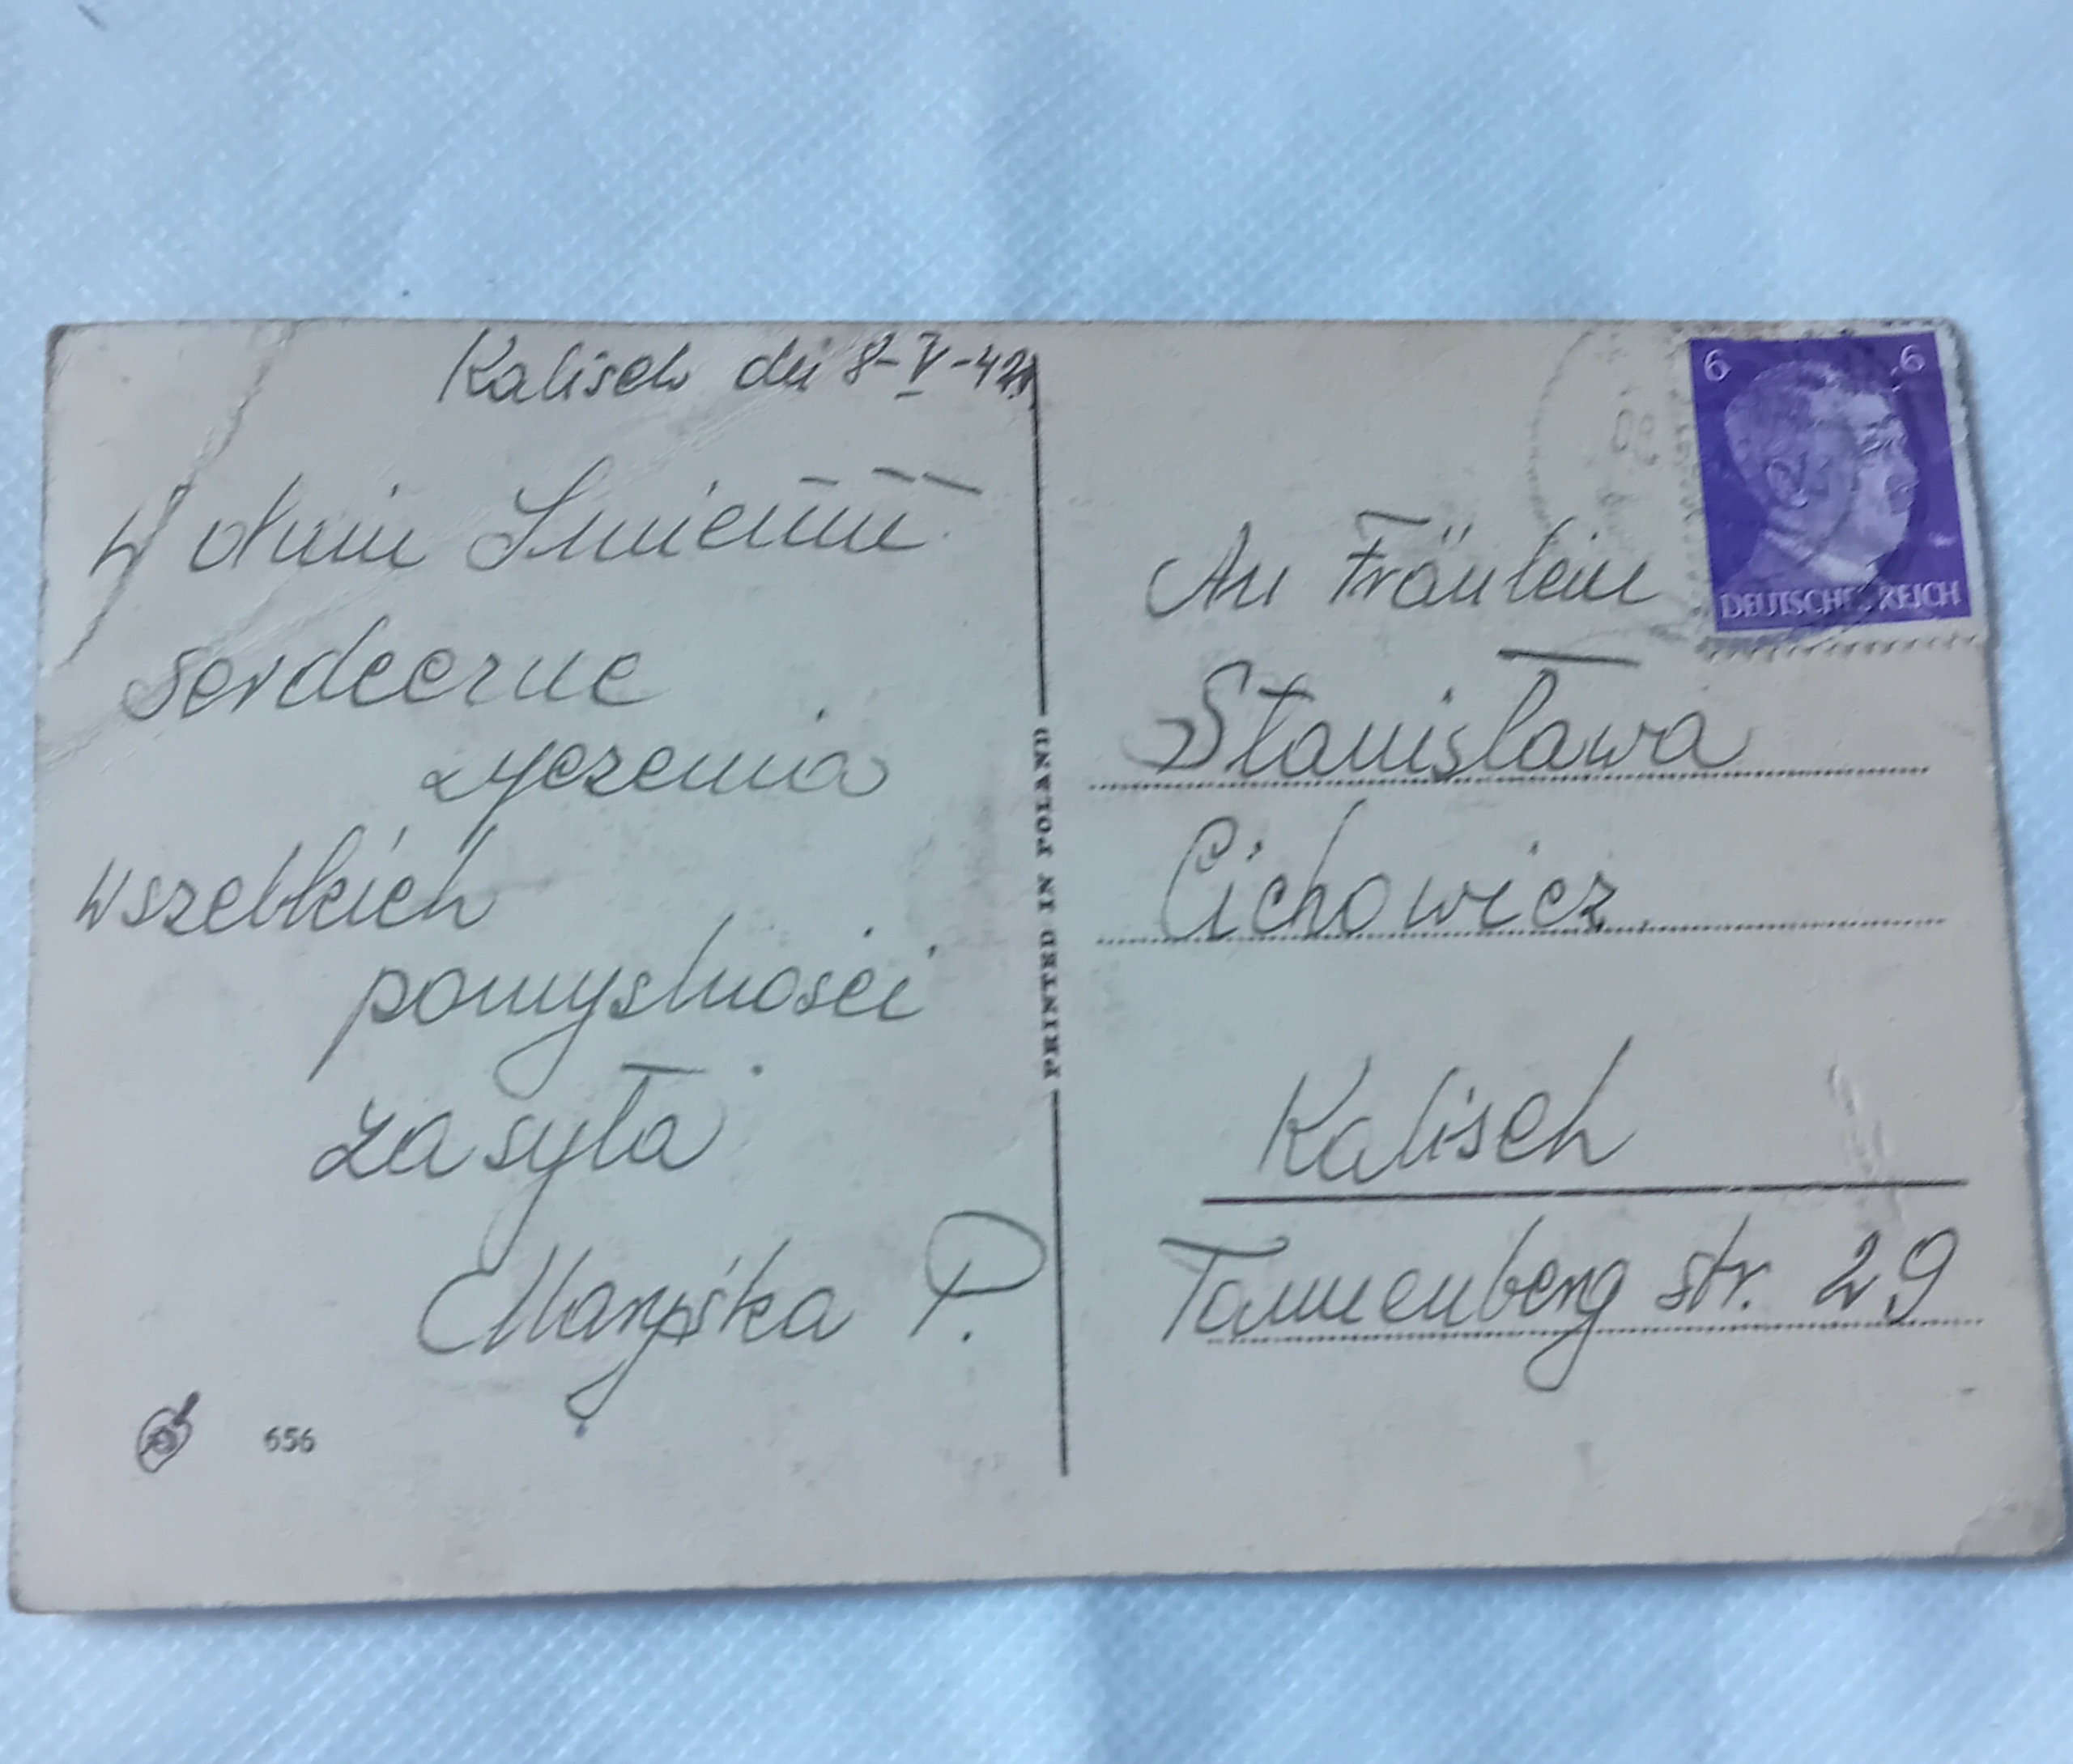 Kalisch den 8-V-42r
W dniu Imienin
serdeczne
życzenia
wszelkich
pomyślności
zasyła
Maryśka P.
656
PRINTED IN POLAND
6 6
DEUTSCHES REICH
An Fräulein
Stanisława
Cichowicz
Kalisch
Tannenberg str. 29